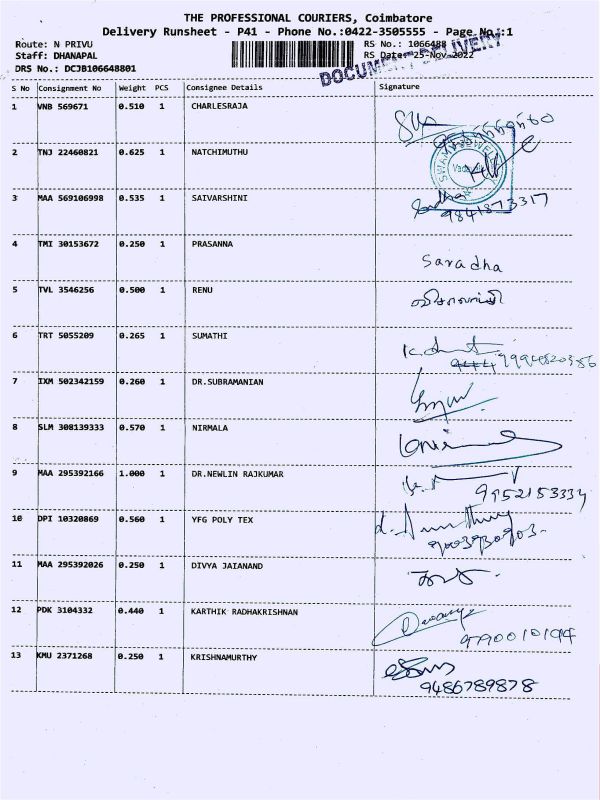 THE PROFESSIONAL COURIERS, Coimbatore
Delivery Runsheet - P41 - Phone No.:0422-3505555 - Page No.:1
Route: N PRIVU
RS No.: 1066488
Staff: DHANAPAL
RS Date: 25-Nov-2022
DRS No.: DCJB106648801
DOCUMENT DELIVERY
S No Consignment No Weight PCS Consignee Details Signature
1 VNB 569671 0.510 1 CHARLESRAJA
2 TNJ 22460821 0.625 1 NATCHIMUTHU
3 MAA 569106998 0.535 1 SAIVARSHINI
9841873317
4 TMI 30153672 0.250 1 PRASANNA Saradha
5 TVL 3546256 0.500 1 RENU
6 TRT 5055209 0.265 1 SUMATHI
9994820386
7 IXM 502342159 0.260 1 DR.SUBRAMANIAN
8 SLM 308139333 0.570 1 NIRMALA
9 MAA 295392166 1.000 1 DR.NEWLIN RAJKUMAR
9952153334
10 DPI 10320869 0.560 1 YFG POLY TEX
9003930903
11 MAA 295392026 0.250 1 DIVYA JAIANAND
12 PDK 3104332 0.440 1 KARTHIK RADHAKRISHNAN
9790010194
13 KMU 2371268 0.250 1 KRISHNAMURTHY
9486789878